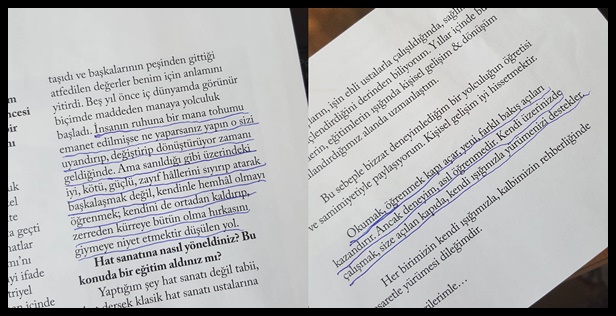 taşıdı ve başkalarının peşinden gittiği
atfedilen değerler benim için anlamını
yitirdi. Beş yıl önce iç dünyamda görünür
biçimde maddeden manaya yolculuk
başladı. İnsanın ruhuna bir mana tohumu
emanet edilmişse ne yaparsanız yapın o sizi
uyandırıp, değiştirip dönüştürüyor zamanı
geldiğinde. Ama sanıldığı gibi üzerindeki
iyi, kötü, güçlü, zayıf hâllerini sıyırıp atarak
başkalaşmak değil, kendinle hemhâl olmayı
öğrenmek; kendini de ortadan kaldırıp,
zerreden kürreye bütün olma hırkasını
giymeye niyet etmektir düşülen yol.
Hat sanatına nasıl yöneldiniz? Bu
konuda bir eğitim aldınız mı?
Yaptığım şey hat sanatı değil tabii,
dersek klasik hat sanatı ustalarına
ncesi
bir
nı
uk
kel
te
a geçti
natlar
mı'nı
yi ifade
triyel
n içinde
ların, işin ehli ustalarla çalışıldığında, sağlı
çlendirdiğini derinden biliyorum. Yıllar içinde bu
erin, eğitimlerin ışığında kişisel gelişim & dönüşüm
landırdığımız alanda uzmanlaştım.
Bu sebeple bizzat deneyimlediğim bir yolculuğun öğretisi
ve samimiyetiyle paylaşıyorum. Kişisel gelişim iyi hissetmektir.
Okumak, öğrenmek kapı açar, yeni farklı bakış açıları
kazandırır. Ancak deneyim, asıl öğrenmedir. Kendi üzerinizde
çalışmak, size açılan kapıda, kendi ışığınızla yürümenizi destekler.
Her birimizin kendi ışığımızla, kalbimizin rehberliğinde
esaretle yürümesi dileğimdir.
erilerimle...